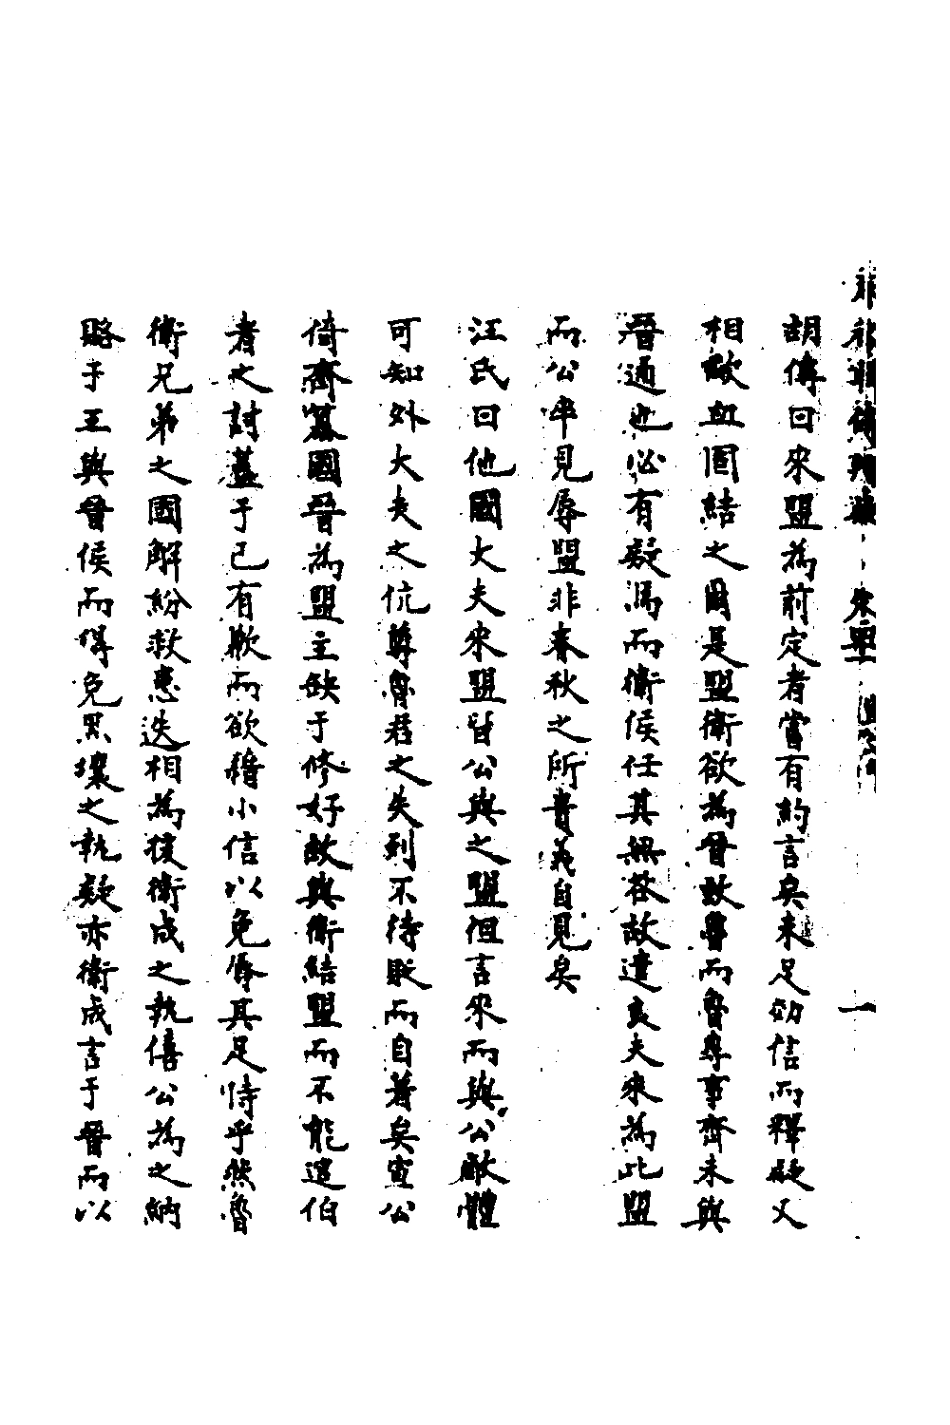 胡傳曰來盟為前定者嘗有約言矣未足効信而釋疑又
相歃血固結之爾是盟衛欲為晉致魯而魯專事齊未與
晉通也必有疑焉而衛侯任其無咎故遣良夫來為此盟
而公卒見辱盟非春秋之所貴義自見矣
汪氏曰他國大夫來盟皆公與之盟但言來而與公敵體
可知外大夫之伉尊魯君之失列不待貶而自著矣宣公
倚齊簒國晉為盟主缺于修好故與衛結盟而不能遣伯
者之討蓋于己有歉而欲藉小信以免辱其足恃乎然魯
衛兄弟之國解紛救患迭相為援衛成之執僖公為之納
賂于王與晉侯而得免黒壤之執疑亦衛成言于晉而以